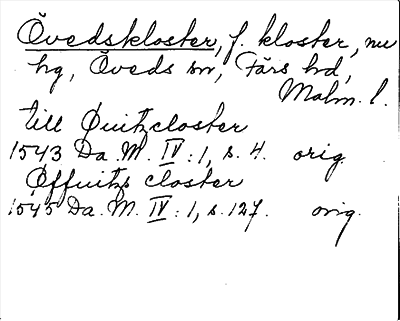 Övedskloster, f. kloster, nu
hg, Öveds sn, Färs hd,
Malm. l.
till Øuitzcloster
1543 Da. M. IV : 1, s. 4. orig.
Øffuitzs closter
1545 Da. M. IV : 1, s. 127. orig.